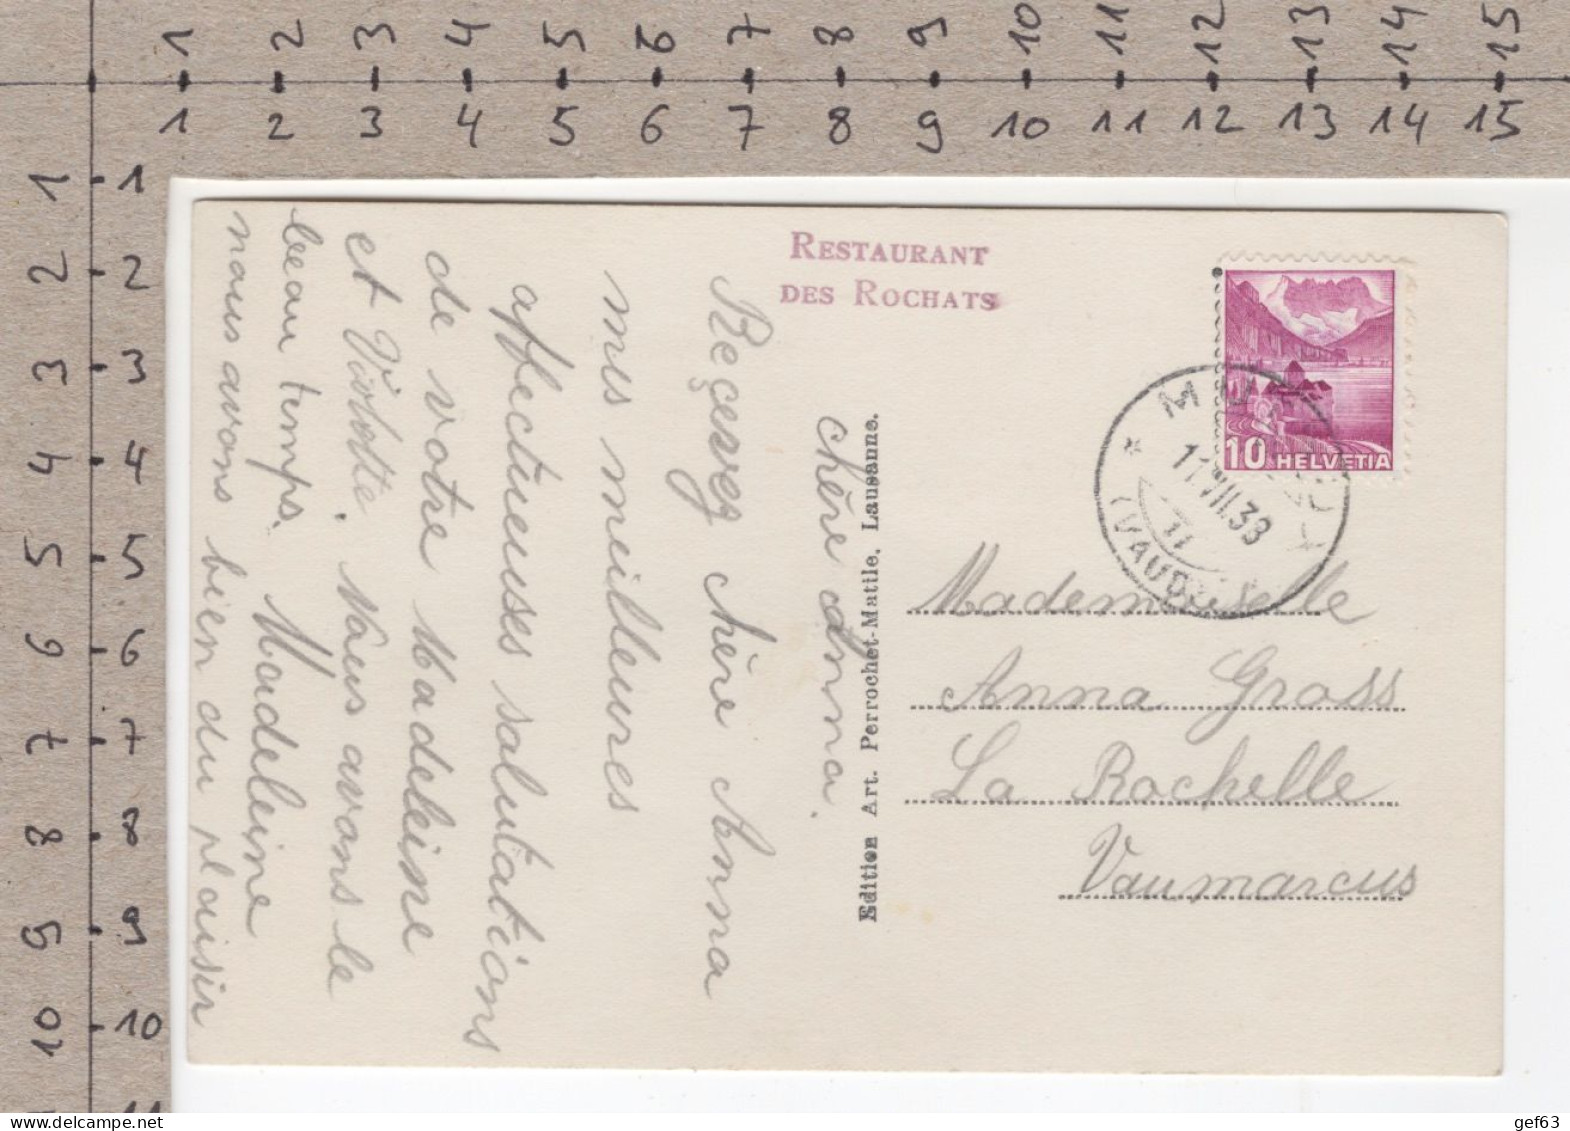 1 2 3 4 5 6 7 8 9 10 11 12 13 14 15
1 2 3 4 5 6 7 8 9 10 11 12 13 14 15
1 1
2 2
3 3
4 4
5 5
6 6
7 7
8 8
9 9
10 10
11
RESTAURANT
DES ROCHATS
10 HELVETIA
11.VII.38
(VAUD)
Chère Anna.
Reçevez chère Anna
mes meilleures
affectueuses salutations
de votre Madeleine
et Violette. Nous avons le
beau temps. Madeleine
nous avons bien du plaisir
Edition Art. Perrochet-Matile, Lausanne.
Mademoiselle
Anna Gross
La Rochelle
Vaumarcus
gef63